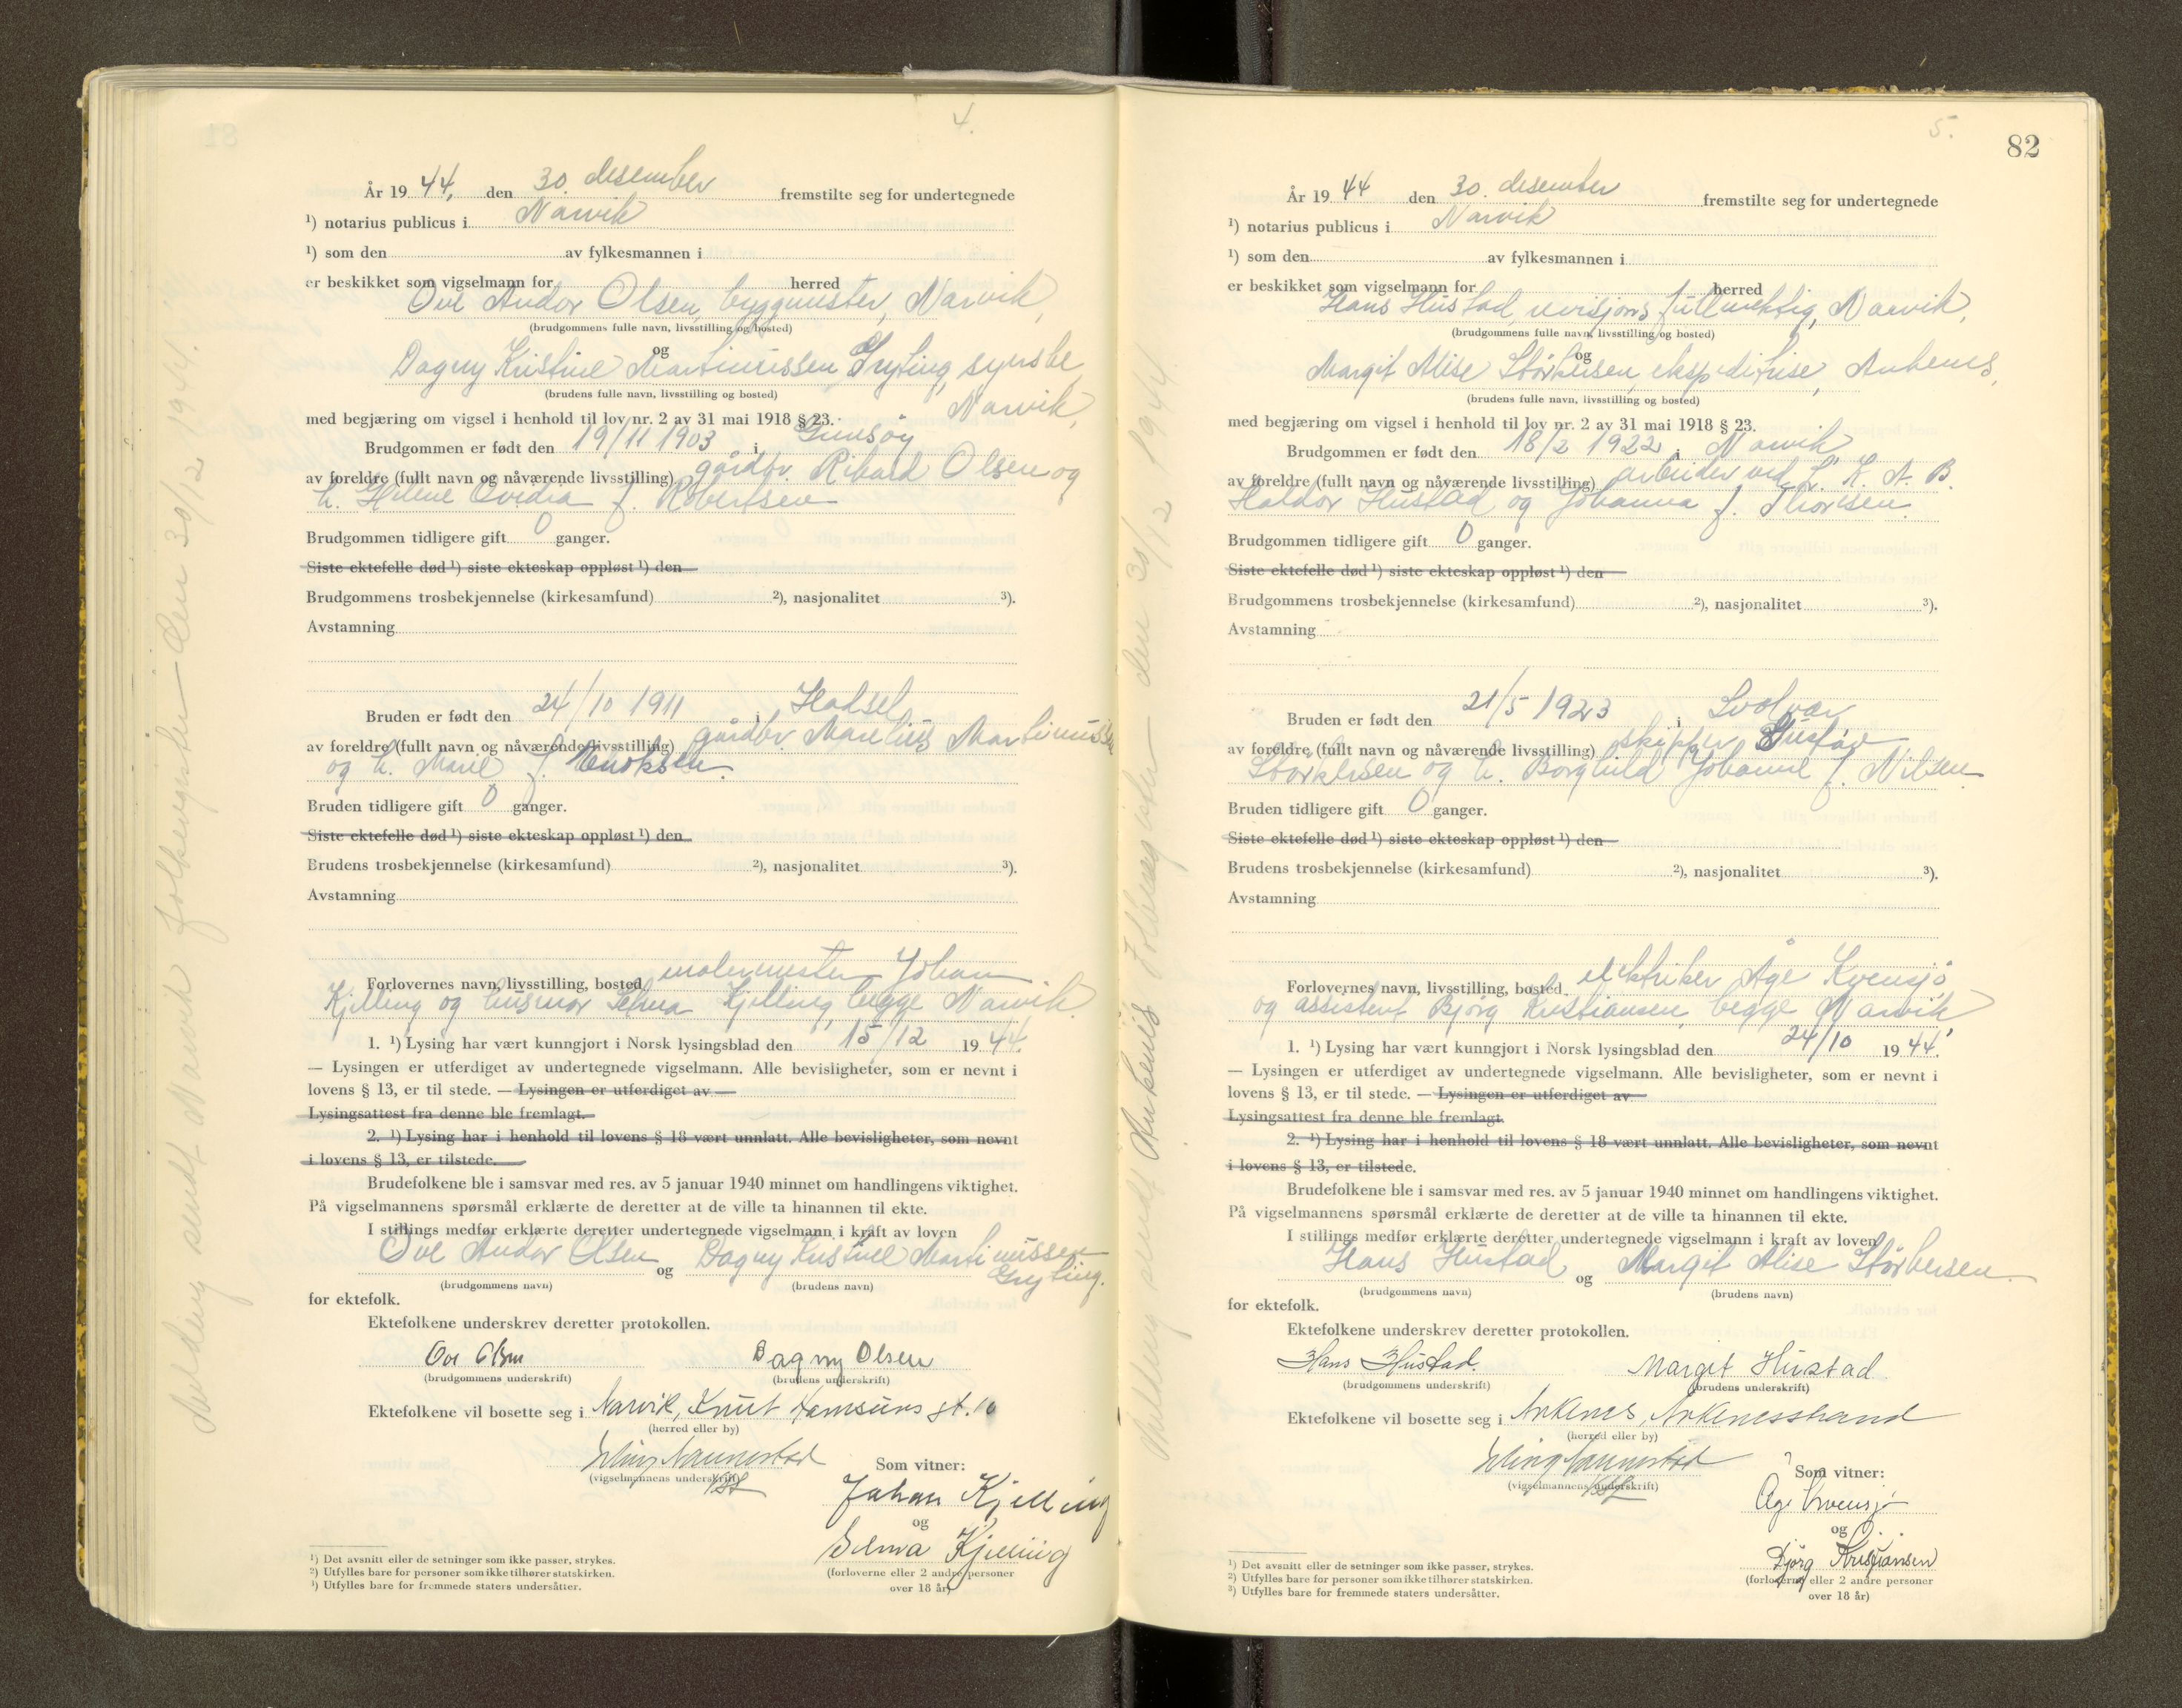 4.
År 19 44, den 30. desember fremstilte seg for undertegnede
¹) notarius publicus i Narvik
¹) som den av fylkesmannen i
er beskikket som vigselmann for herred
Ove Andor Olsen, byggmester, Narvik,
(brudgommens fulle navn, livsstilling og bosted)
og
Dagny Kristine Martinussen Gryting, syerske,
(brudens fulle navn, livsstilling og bosted)
Narvik,
med begjæring om vigsel i henhold til lov nr. 2 av 31 mai 1918 § 23.
Brudgommen er født den 19/11 1903 i Gimsøy
av foreldre (fullt navn og nåværende livsstilling) gårdbr. Rikard Olsen og
h. Helene Ovidia f. Robertsen
Brudgommen tidligere gift 0 ganger.
Siste ektefelle død ¹) siste ekteskap oppløst ¹) den
Brudgommens trosbekjennelse (kirkesamfund) ²), nasjonalitet ³).
Avstamning
Bruden er født den 24/10 1911 i Hadsel
av foreldre (fullt navn og nåværende livsstilling) gårdbr. Marelius Martinussen
og h. Marie f. Enoksen.
Bruden tidligere gift 0 ganger.
Siste ektefelle død ¹) siste ekteskap oppløst ¹) den
Brudens trosbekjennelse (kirkesamfund) ²), nasjonalitet ³).
Avstamning
Forlovernes navn, livsstilling, bosted malermester Johan
Kjelling og husmor Selma Kjelling, begge Narvik.
1. ¹) Lysing har vært kunngjort i Norsk lysingsblad den 15/12 19 44.
— Lysingen er utferdiget av undertegnede vigselmann. Alle bevisligheter, som er nevnt i
lovens § 13, er til stede. — Lysingen er utferdiget av
Lysingsattest fra denne ble fremlagt.
2. ¹) Lysing har i henhold til lovens § 18 vært unnlatt. Alle bevisligheter, som nevnt
i lovens § 13, er tilstede.
Brudefolkene ble i samsvar med res. av 5 januar 1940 minnet om handlingens viktighet.
På vigselmannens spørsmål erklærte de deretter at de ville ta hinannen til ekte.
I stillings medfør erklærte deretter undertegnede vigselmann i kraft av loven
Ove Andor Olsen og Dagny Kristine Martinussen
Gryting.
(brudgommens navn) (brudens navn)
for ektefolk.
Ektefolkene underskrev deretter protokollen.
Ove Olsen Dagny Olsen
(brudgommens underskrift) (brudens underskrift)
Ektefolkene vil bosette seg i Narvik, Knut Hamsuns gt. 10
(herred eller by)
(vigselmannens underskrift)
Som vitner:
Johan Kjelling
og
Selma Kjelling
(forloverne eller 2 andre personer
over 18 år)
¹) Det avsnitt eller de setninger som ikke passer, strykes.
²) Utfylles bare for personer som ikke tilhører statskirken.
³) Utfylles bare for fremmede staters undersåtter.
Melding sendt Narvik folkeregister den 30/12 1944.
5.
82
År 19 44 den 30. desember fremstilte seg for undertegnede
¹) notarius publicus i Narvik
¹) som den av fylkesmannen i
er beskikket som vigselmann for herred
Hans Hustad, revisjonsfullmektig, Narvik,
(brudgommens fulle navn, livsstilling og bosted)
og
Margit Alise Størkersen, ekspeditrise, Ankenes,
(brudens fulle navn, livsstilling og bosted)
med begjæring om vigsel i henhold til lov nr. 2 av 31 mai 1918 § 23.
Brudgommen er født den 18/2 1922 i Narvik
av foreldre (fullt navn og nåværende livsstilling) arbeider ved L. K. A. B.
Haldor Hustad og Johanna f. Thorsen.
Brudgommen tidligere gift 0 ganger.
Siste ektefelle død ¹) siste ekteskap oppløst ¹) den
Brudgommens trosbekjennelse (kirkesamfund) ²), nasjonalitet ³).
Avstamning
Bruden er født den 21/5 1923 i Svolvær
av foreldre (fullt navn og nåværende livsstilling) skipper Gustav
Størkersen og h. Borghild Johanne f. Nilsen
Bruden tidligere gift 0 ganger.
Siste ektefelle død ¹) siste ekteskap oppløst ¹) den
Brudens trosbekjennelse (kirkesamfund) ²), nasjonalitet ³).
Avstamning
Forlovernes navn, livsstilling, bosted elektriker Åge Kvensjø
og assistent Bjørg Kristiansen, begge Narvik
1. ¹) Lysing har vært kunngjort i Norsk lysingsblad den 24/10 19 44.
— Lysingen er utferdiget av undertegnede vigselmann. Alle bevisligheter, som er nevnt i
lovens § 13, er til stede. — Lysingen er utferdiget av
Lysingsattest fra denne ble fremlagt.
2. ¹) Lysing har i henhold til lovens § 18 vært unnlatt. Alle bevisligheter, som nevnt
i lovens § 13, er tilstede.
Brudefolkene ble i samsvar med res. av 5 januar 1940 minnet om handlingens viktighet.
På vigselmannens spørsmål erklærte de deretter at de ville ta hinannen til ekte.
I stillings medfør erklærte deretter undertegnede vigselmann i kraft av loven
Hans Hustad og Margit Alise Størkersen
(brudgommens navn) (brudens navn)
for ektefolk.
Ektefolkene underskrev deretter protokollen.
Hans Hustad. Margit Hustad
(brudgommens underskrift) (brudens underskrift)
Ektefolkene vil bosette seg i Ankenes, Ankenesstrand
(herred eller by)
(vigselmannens underskrift)
Som vitner:
Åge Kvensjø
og
Bjørg Kristiansen
(forloverne eller 2 andre personer
over 18 år)
¹) Det avsnitt eller de setninger som ikke passer, strykes.
²) Utfylles bare for personer som ikke tilhører statskirken.
³) Utfylles bare for fremmede staters undersåtter.
Melding sendt Ankenes Folkeregister den 30/12 1944.